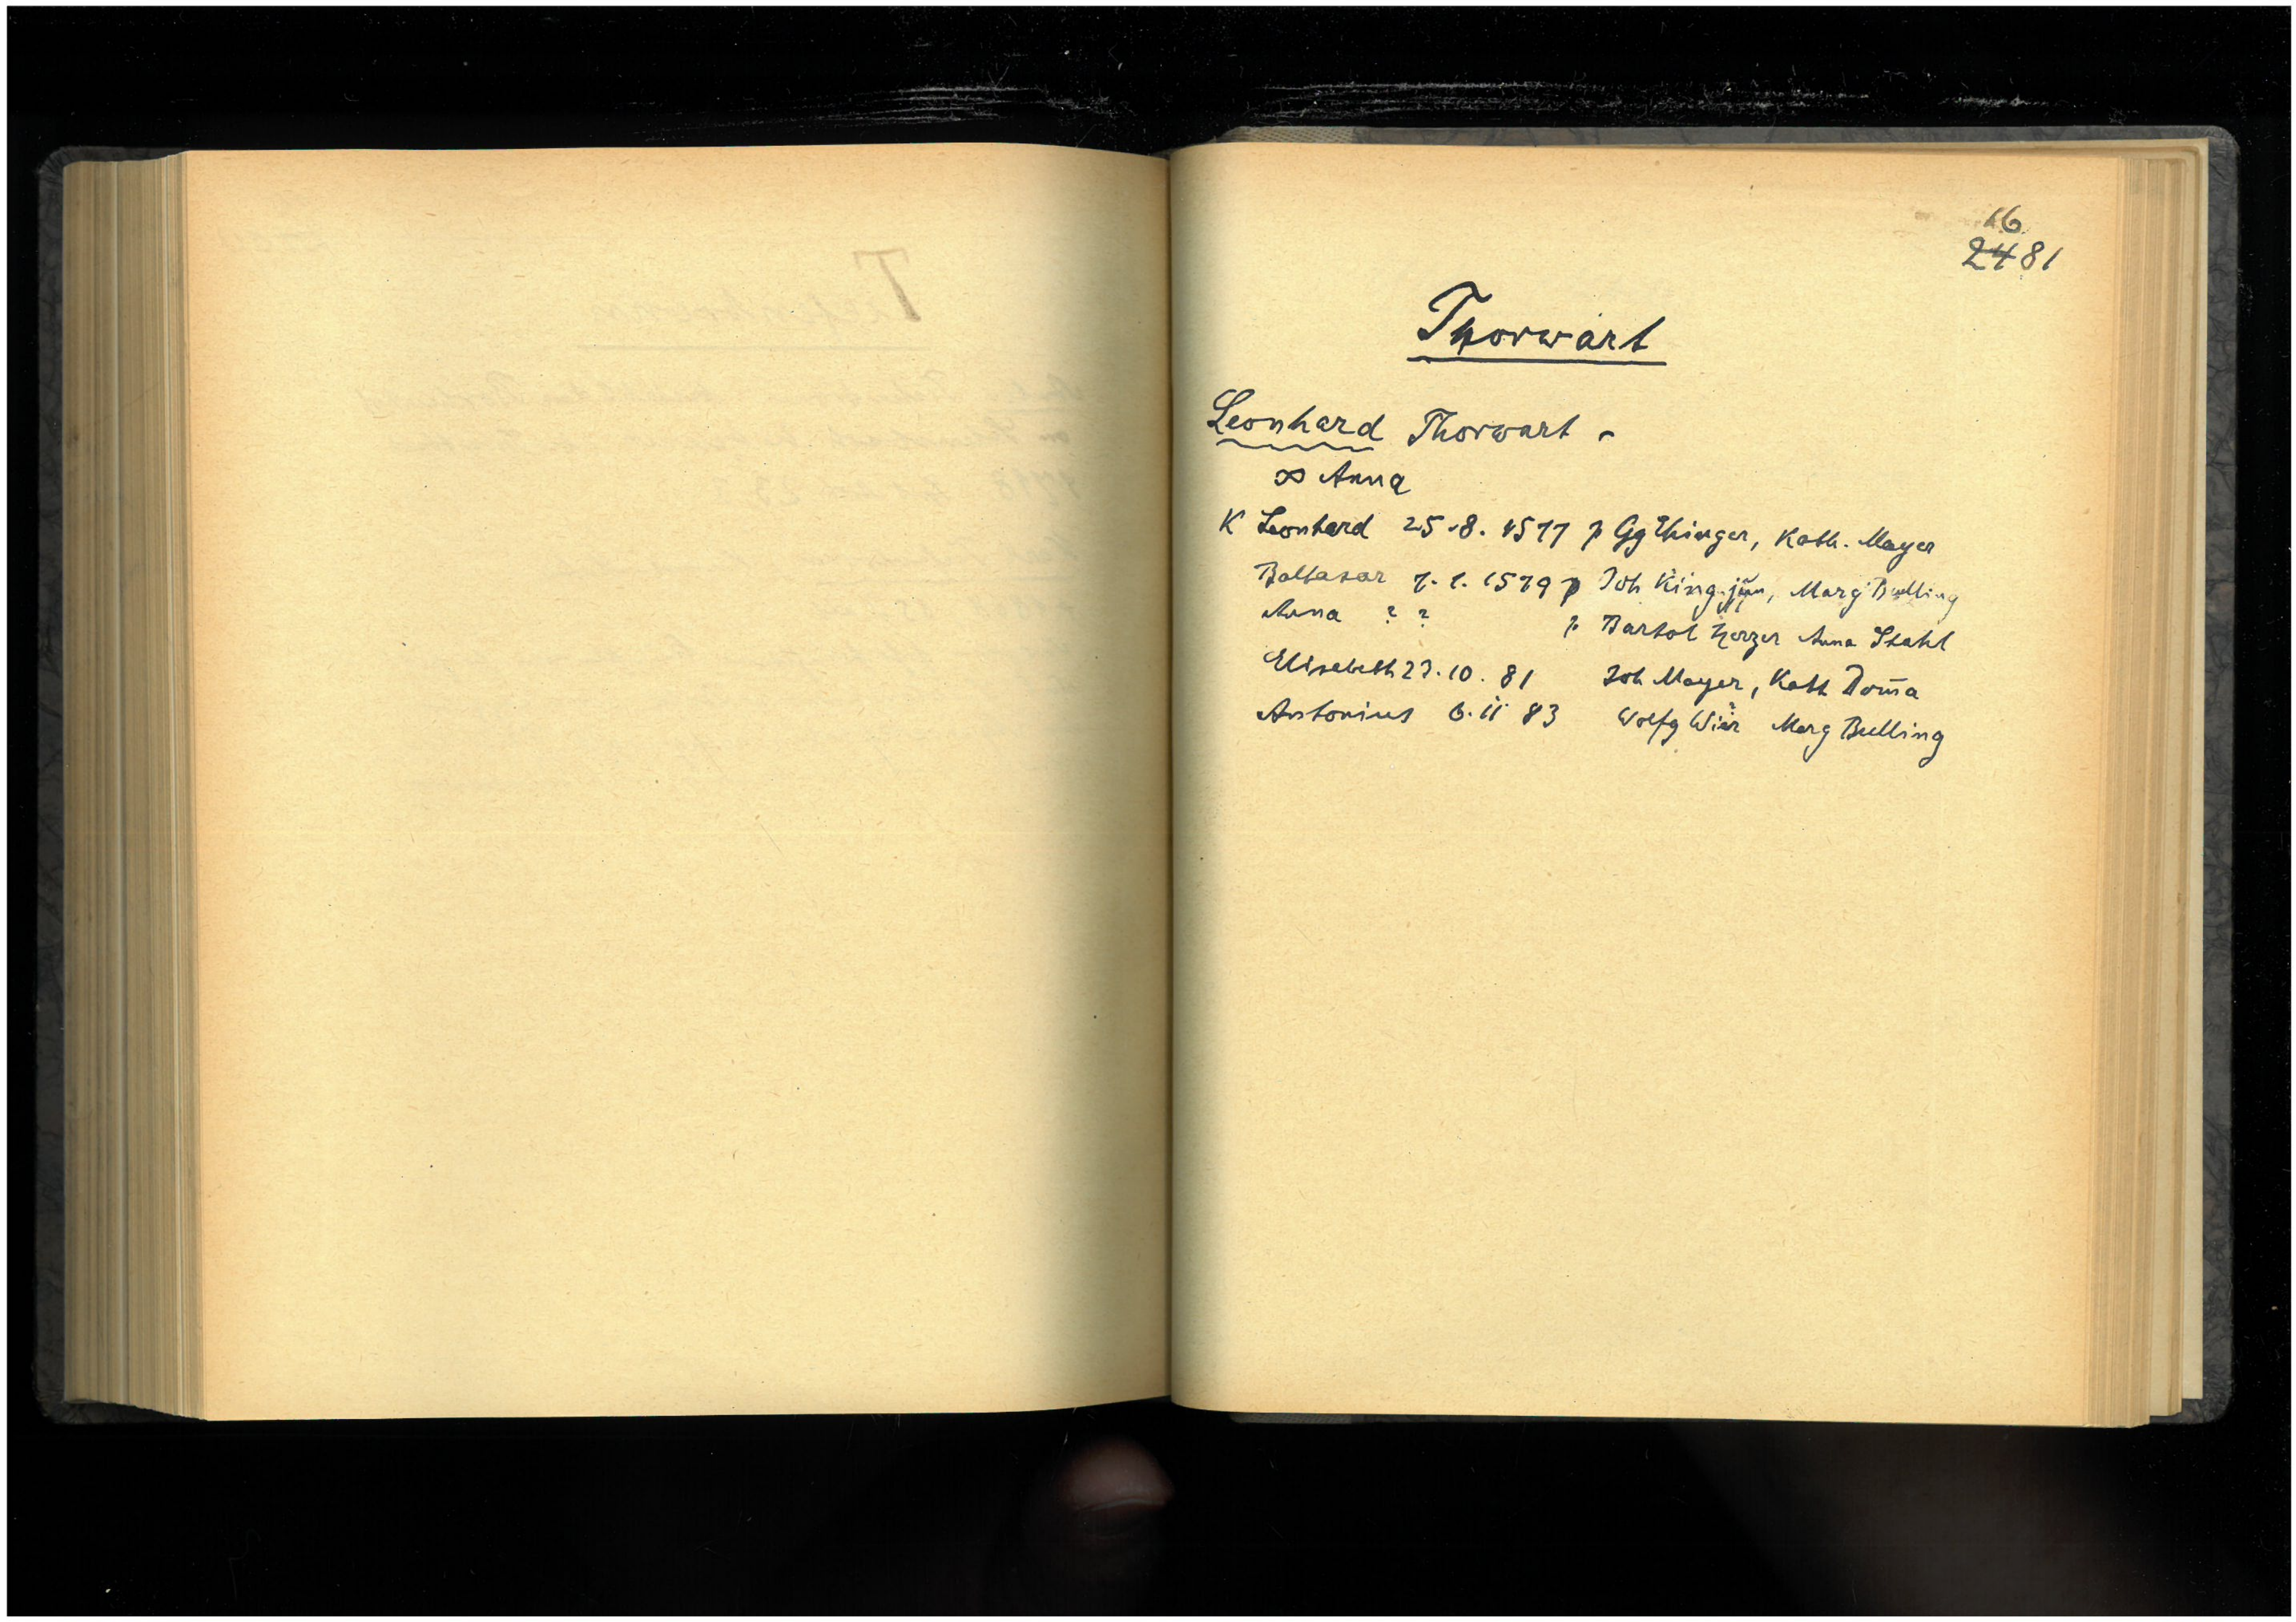 16
2481
Thorwart
Leonhard Thorwart -
∞ Anna
K Leonhard 25.8.1577 p Gg Ehinger, Kath. Mayer
Baltasar 7.1.1579 p Joh King jun, Marg Bulling
Anna ? ? p Bartol Herzer Anna Stahl
Elisabeth 23.10.81 Joh Mayer, Kath Dom̄a
Antonius 6.11 83 Wolfg Marg Bulling